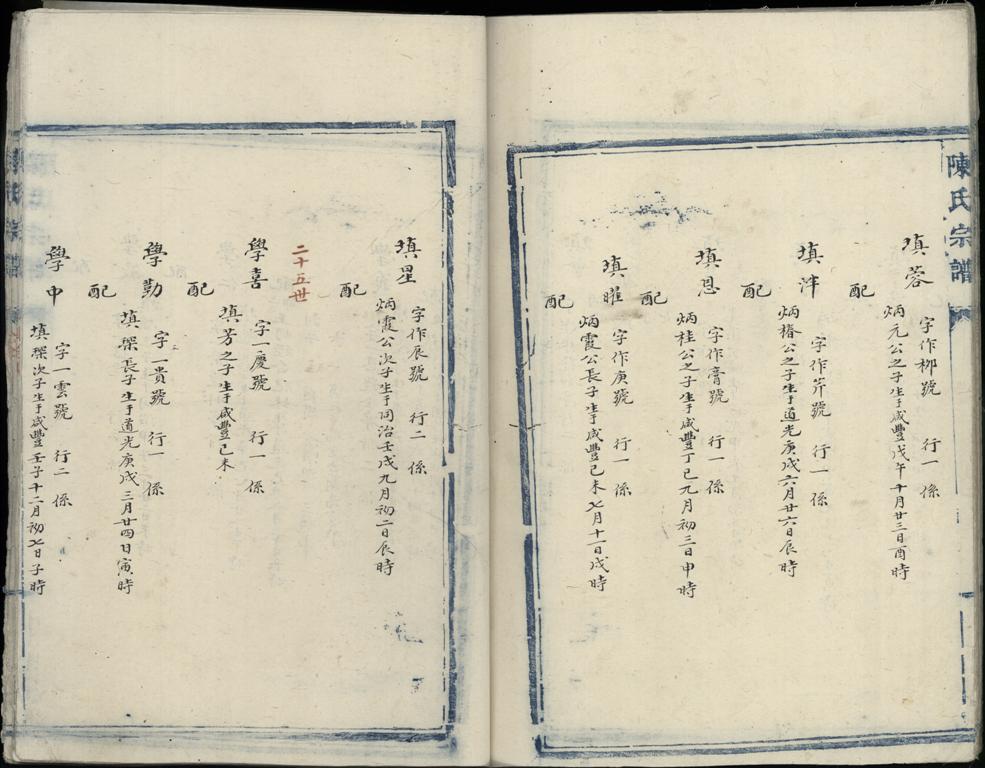 陳氏宗譜
填蓉
字作柳號 行一 係
炳元公之子生于咸豐戊午十月廿三日酉時
配
填泮
字作芹號 行一 係
炳椿公之子生于道光庚戌六月廿六日辰時
配
填恩
字作膏號 行一 係
炳桂公之子生于咸豐丁巳九月初三日申時
配
填曜
字作庚號 行一 係
炳霞公長子生于咸豐己未七月十一日戌時
配
填星
字作辰號 行二 係
炳霞公次子生于同治壬戌九月初二日辰時
配
二十五世
學喜
字一慶號 行一 係
填芳之子生于咸豐己未
配
學勤
字一貴號 行一 係
填櫟長子生于道光庚戌三月廿四日寅時
配
學申
字一雲號 行二 係
填櫟次子生于咸豐壬子十二月初七日子時